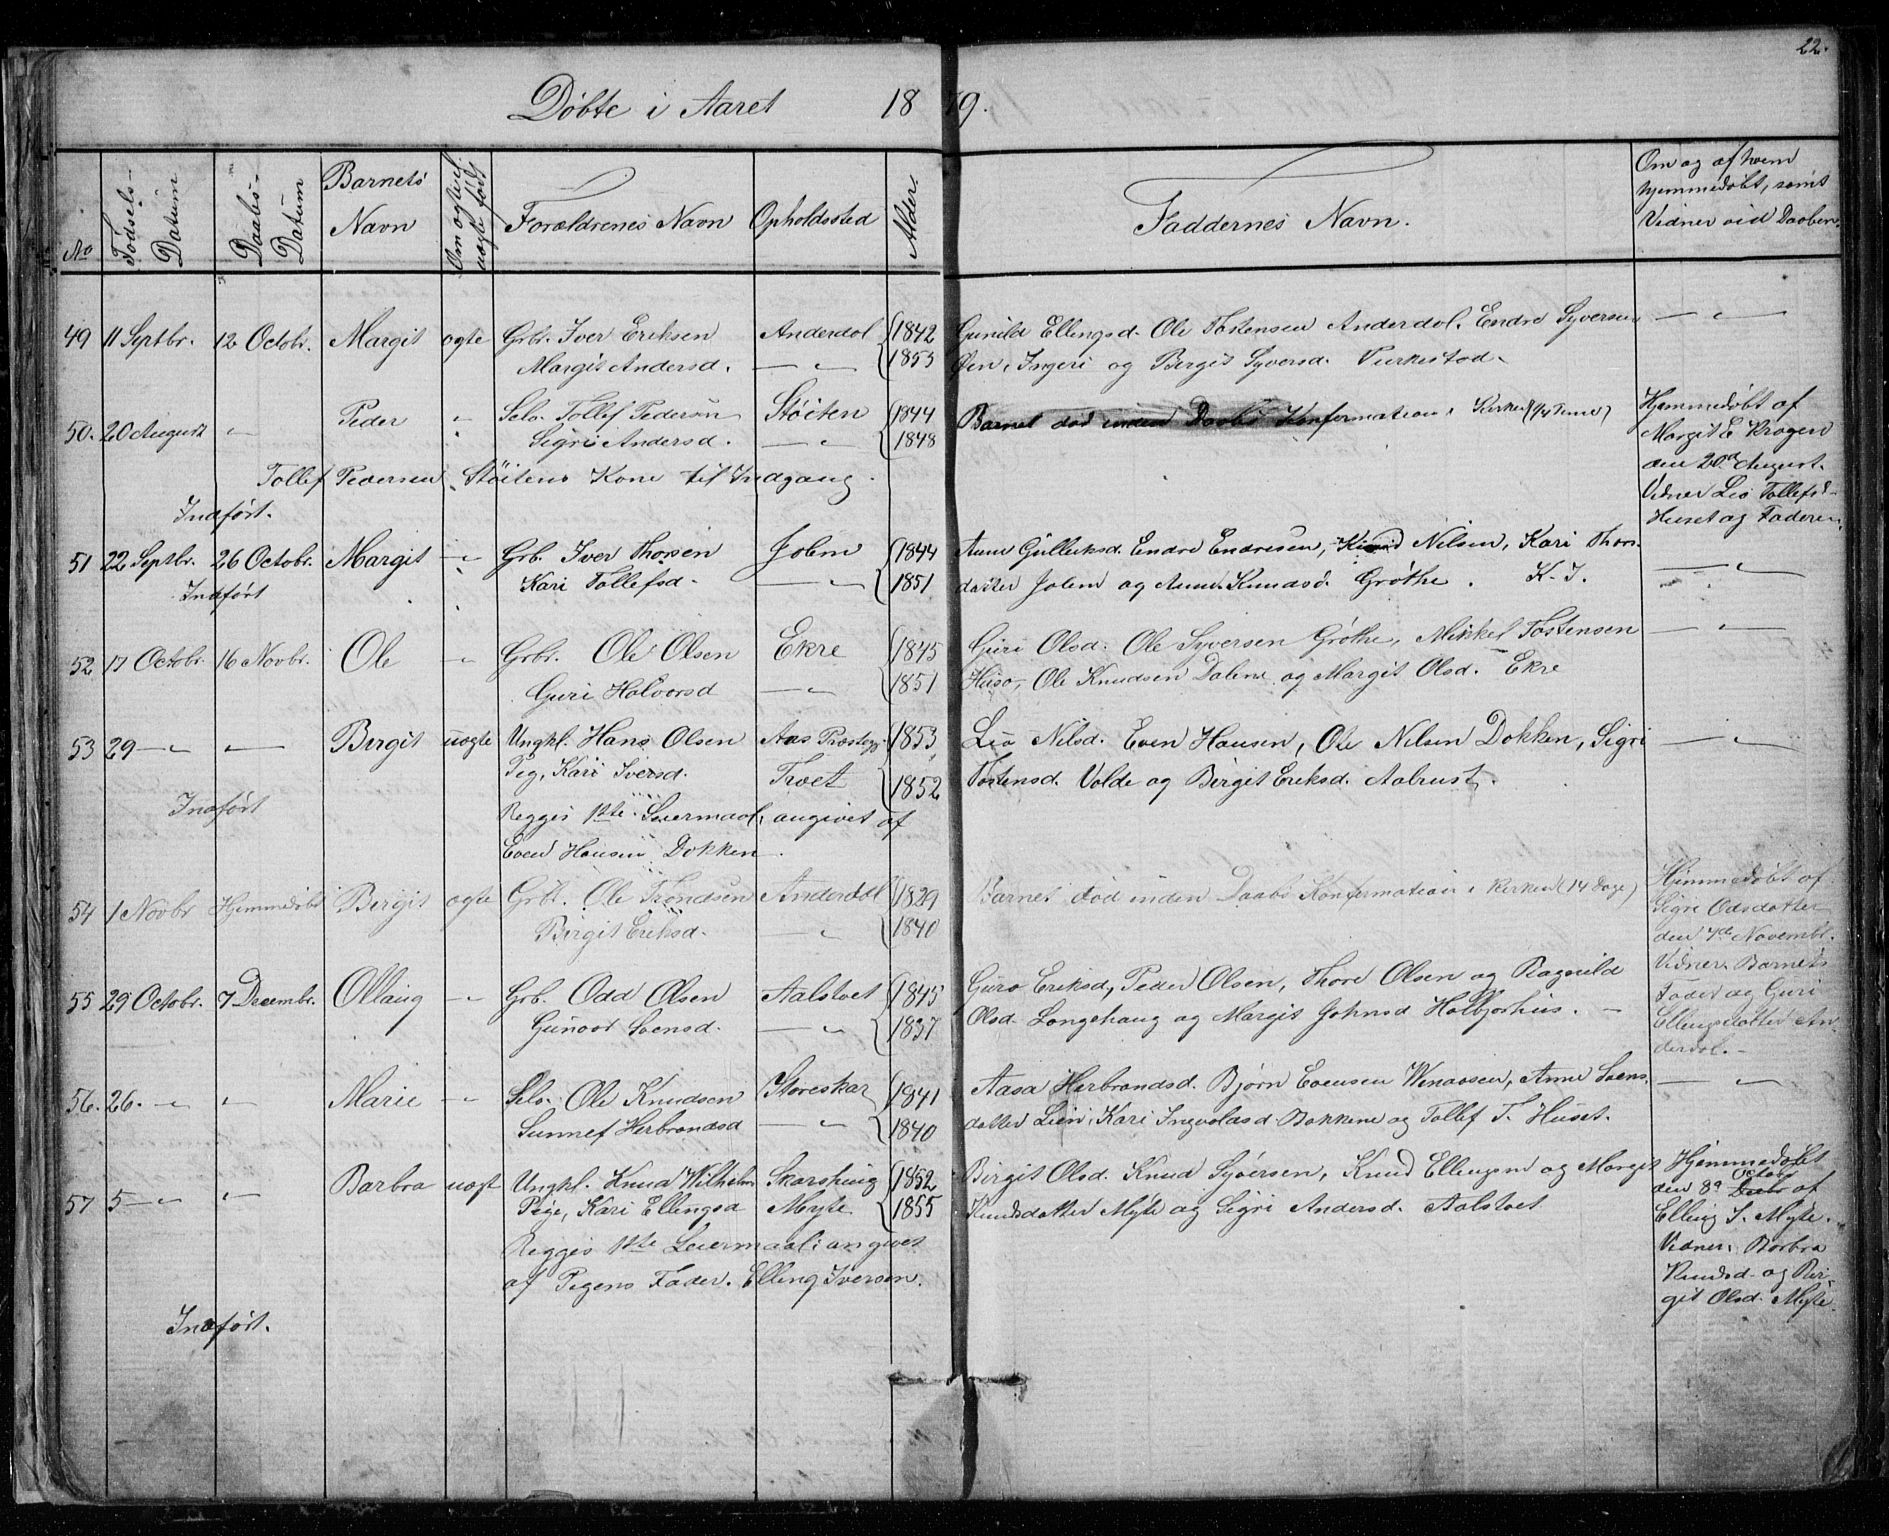 22.
Døbte i Aaret 1879.
No
Fødsels-Datum
Daabs-Datum
Barnets Navn
Om ægte el. uægte født
Forældrenes Navn
Opholdssted
Alder
Faddernes Navn.
Om og af hvem hjemmedøbt, samt Vidner vid Daaben.
49 11 Septbr. 12 Octobr. Margit ægte Grbr. Iver Eriksen Anderdal 1842 Gunild Ellingsd. Ole Tostensen Anderdal. Endre Syversen — „ —
Margit Andersd. — „ 1853 Øen, Ingeri og Birgit Syversd. Turkestad.
50. 20 August „ Peder „ Selv. Tollef Pedersen Støiten 1844 Barnet død inden Daabs Konfermation i Kirken
Sigri Andersd. — „ 1848
Hjemmedøbt af
Margit E Krogen
den 20d August.
Vidner Liv Tollefsd-
Huset og Faderen
Tollef Pedersen Støitens Kone til Indgang.
Indført.
51 22 Septbr. 26 Octobr. Margit — „ Grb. Iver Thorsen Jolem 1844 Anne Gulleiksd. Endre Endresen, Nilsen, Kari Thors-
Indført Kari Tollefsd. — „ 1851 datter Jolem og Anne Knudsd. Grøthe. K. I. — „
52 17 Octobr. 16 Novbr. Ole — „ Grbr. Ole Olsen Ekre 1845 Guri Olsd. Ole Syversen Grøthe, Mikkel Tostensen — „
Guri Halvorsd — „ 1851 Huso, Ole Knudsen Dalene og Margit Olsd. Ekre
53 29 — „ — „ — Birgit uægte Ungkl. Hans Olsen Aas Præsteg. 1853 Liv Nilsd. Even Hansen, Ole Nilsen Dokken, Sigri — „
Pig, Kari Iversd. Troet 1852 Tostensd. Volde og Birgit Eriksd. Aalrust.
Indført Begges 1ste Leiermaal, angivet af
Even Hansen Dokken.
54 1 Novbr Hjemmedøbt Birgit ægte Grb. Ole Trondsen Anderdal 1829 Barnet død inden Daabs Konfermation i Kirken (14 Dage)
Birgit Eriksd. — „ 1840
Hjemmedøbt af
Sigri Odsdatter
den 4de Novembr.
Vidner: Barnets
Fader og Guri
Ellingsdatter An-
derdal.
55 29 Octobr. 7 Decembr. Ollaug — „ Grb. Odd Olsen Aalstvet 1845 Guro Eriksd, Peder Olsen, Thore Olsen og Ragnild
Gunvor Svensd. — „ 1837 Olsd. Longehaug og Margit Johnsd Halbjorhus.
56. 26. — „ „ Marie — „ Selv. Ole Knudsen Storeskar 1841 Aasa Herbrandsd. Bjørn Evensen, Anne Svens- — „
Sunnef Herbrandsd — „ 1840 datter Lien, Kari Ingvoldsd Bakkene og Tollef T. Huset.
57 5 — „ „ Barbra uægt Ungkl. Knud Wilhelm Skarsheug 1852 Birgit Olsd. Knud Syversen, Knud Ellingsen og Margit
Pige, Kari Ellingsd Myte 1855 Knudsdatter Myte og Sigri Andersd. Aalstvet
Begges 1ste Leiermaal: angivet
af Pigens Fader. Elling Iversen.
Hjemmedøbt
Octobr
den 8d af
Elling I. Myte.
Vidner: Barbra
Knudsd- og Bir-
git Olsd. Myte.
Indført.